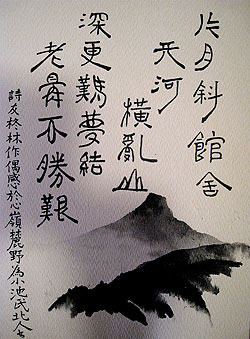 片月斜館舍
天河
橫亂山
深更難夢結
老鼻不勝艱
詩及柊林作偶感於心嶺麓野為小池氏北人書